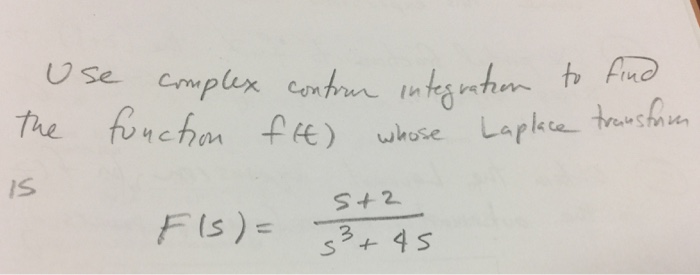 Use complex contour integration to find
the function f(t) whose Laplace transform
is
F(s) = s+2 / s³ + 4s